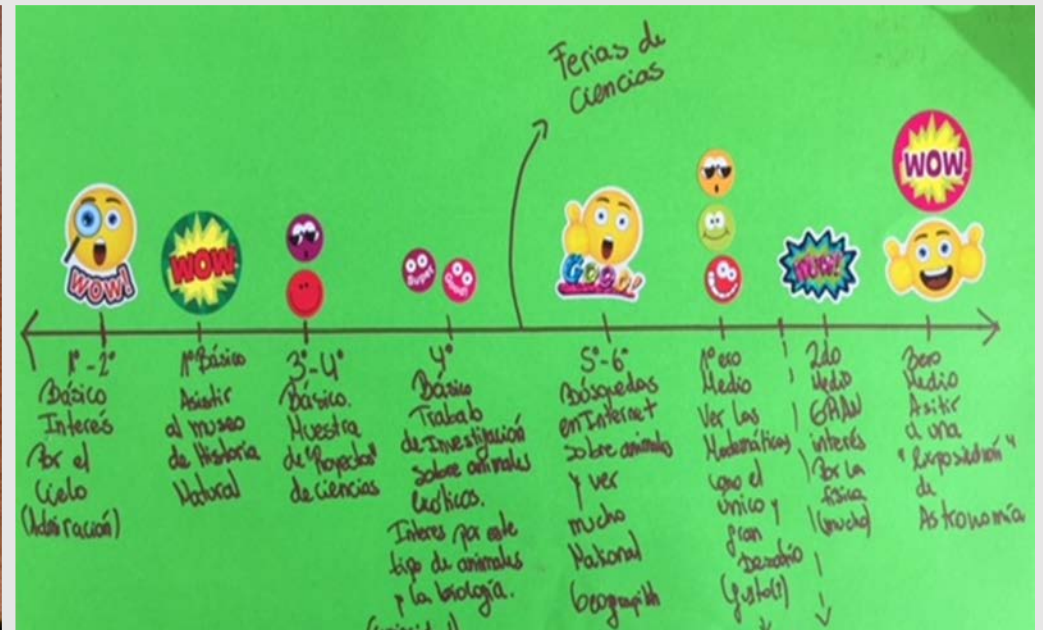 Ferias de
Ciencias
WOW!
WOW
Super
GOOD!
WOW
1°-2°
Básico
Interés
Por el
Cielo
1° Básico
Asistir
al museo
de Historia
Natural
3°-4°
Básico.
Muestra
de "Proyectos"
de ciencias
4°
Básico
Trabajo
de Investigación
sobre animales
Exóticos.
Interes por este
tipo de animales
y la biología.
5°-6°
Búsquedas
en Internet
sobre animales
y ver
mucho
National
1°ero
Medio
Ver las
Matemáticas
como el
único y
gran
Desafío
2do
Medio
GRAN
interés
Por la
física
(mucho)
3ero
Medio
Asitir
a una
"Exposición"
de
Astronomía